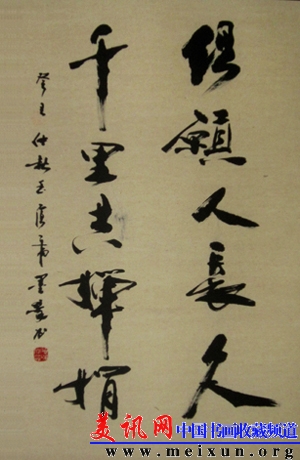 但願人長久
千里共嬋娟
癸巳仲秋
美讯网 中国书画收藏频道
www.meixun.org